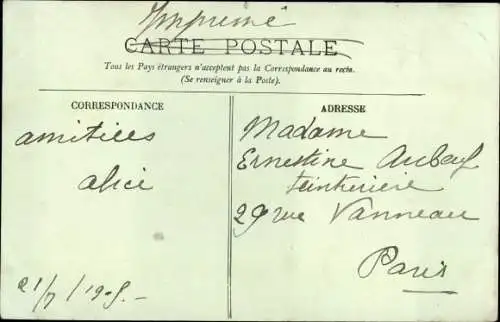 Imprimé
CARTE POSTALE
Tous les Pays étrangers n'acceptent pas la Correspondance au recto.
(Se renseigner à la Poste).
CORRESPONDANCE
amitiées
alice
21/7/1905.
ADRESSE
Madame
Ernestine
teinturière
29 rue Vanneau
Paris